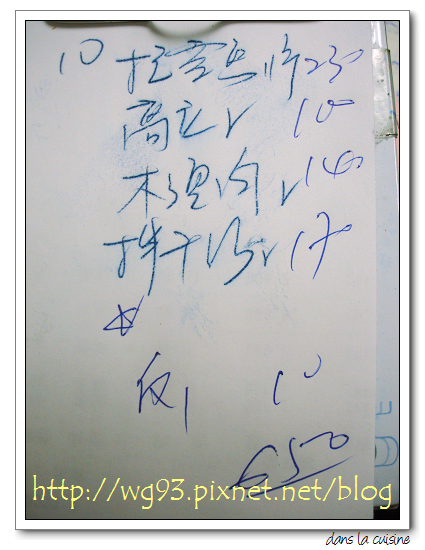 10 豆腐 230
高立 100
木須肉 140
干 170
飯1 10
650
http://wg93.pixnet.net/blog
dans la cuisine